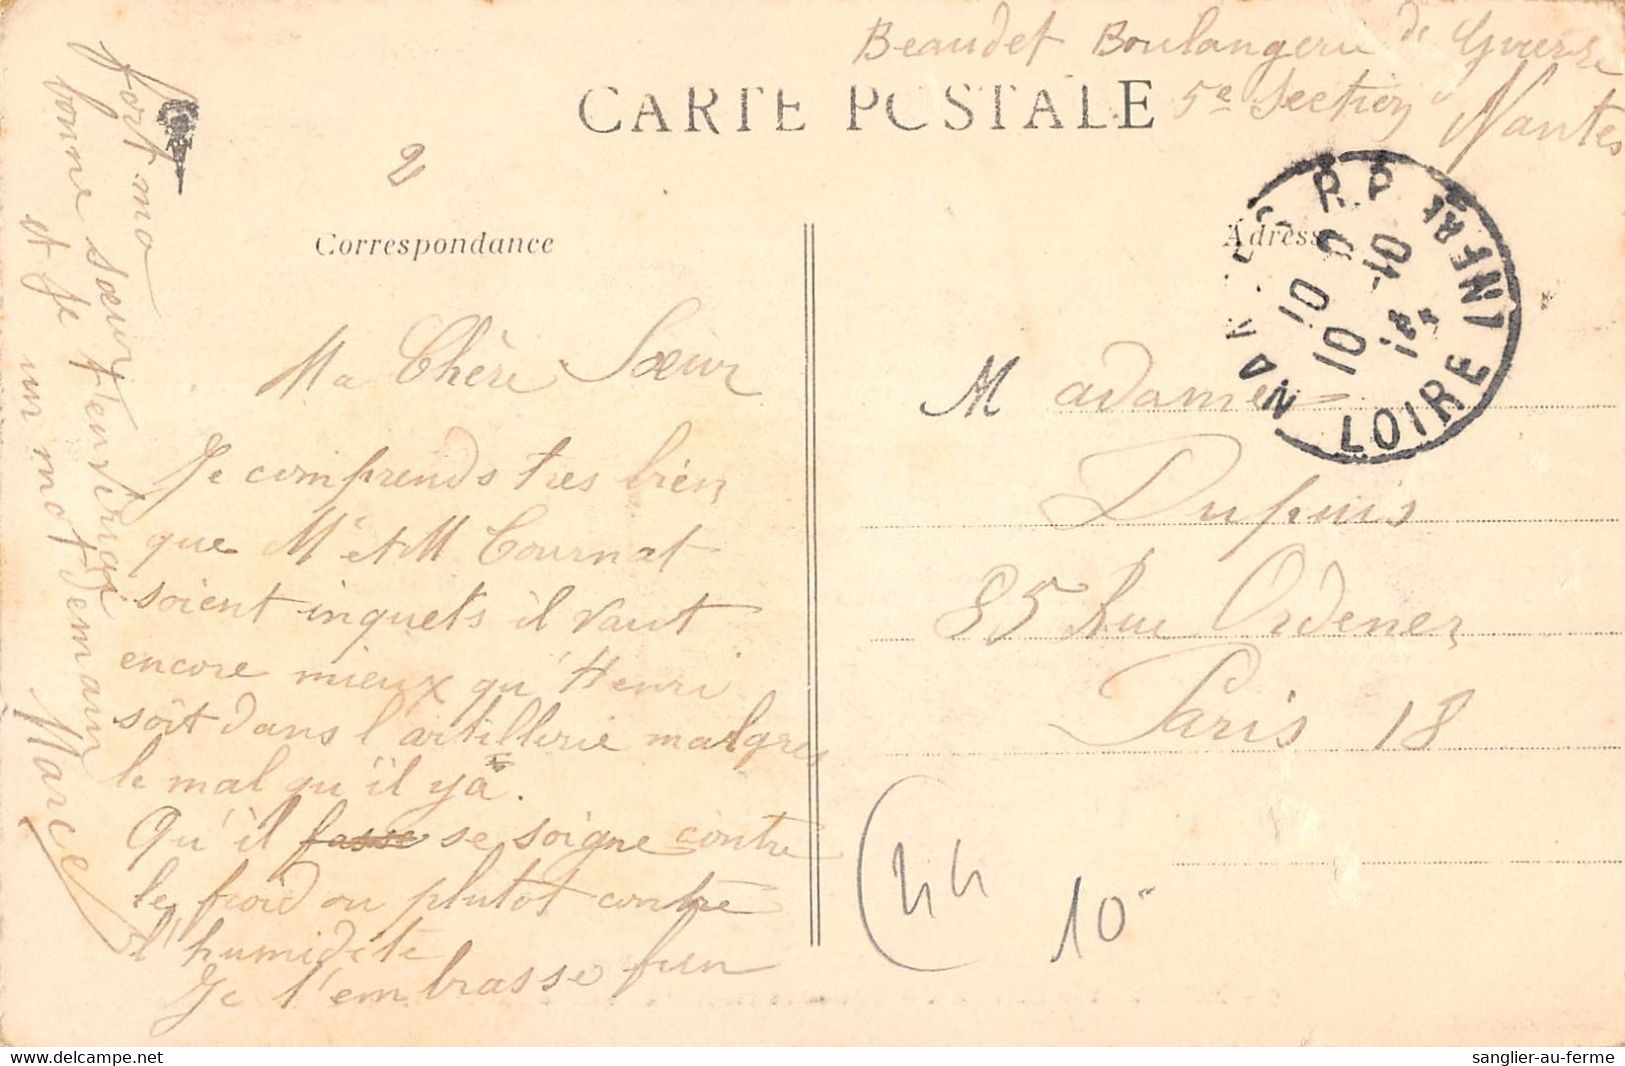 Beaudet Boulangerie de Guerre
5e Section Nantes
CARTE POSTALE
2
Correspondance
Adresse
NANTES R.P.
LOIRE INFRE
10 10
10 10
Ma Chère Sœur
Je comprends tres bien
que Mr et M Cournat
soient inquets il vaut
encore mieux qu'Henri
soit dans l'artillerie malgres
le mal qu'il y a.
Qu'il fasse se soigne contre
le froid ou plutot contre
l'humidité
Je t'embrasse bien
fort ma
bonne sœur
et je t'enverrai
un mot demain
Marcel
Madame
Dupuis
85 Rue Ordener
Paris 18
(44
10-
sanglier-au-ferme
www.delcampe.net